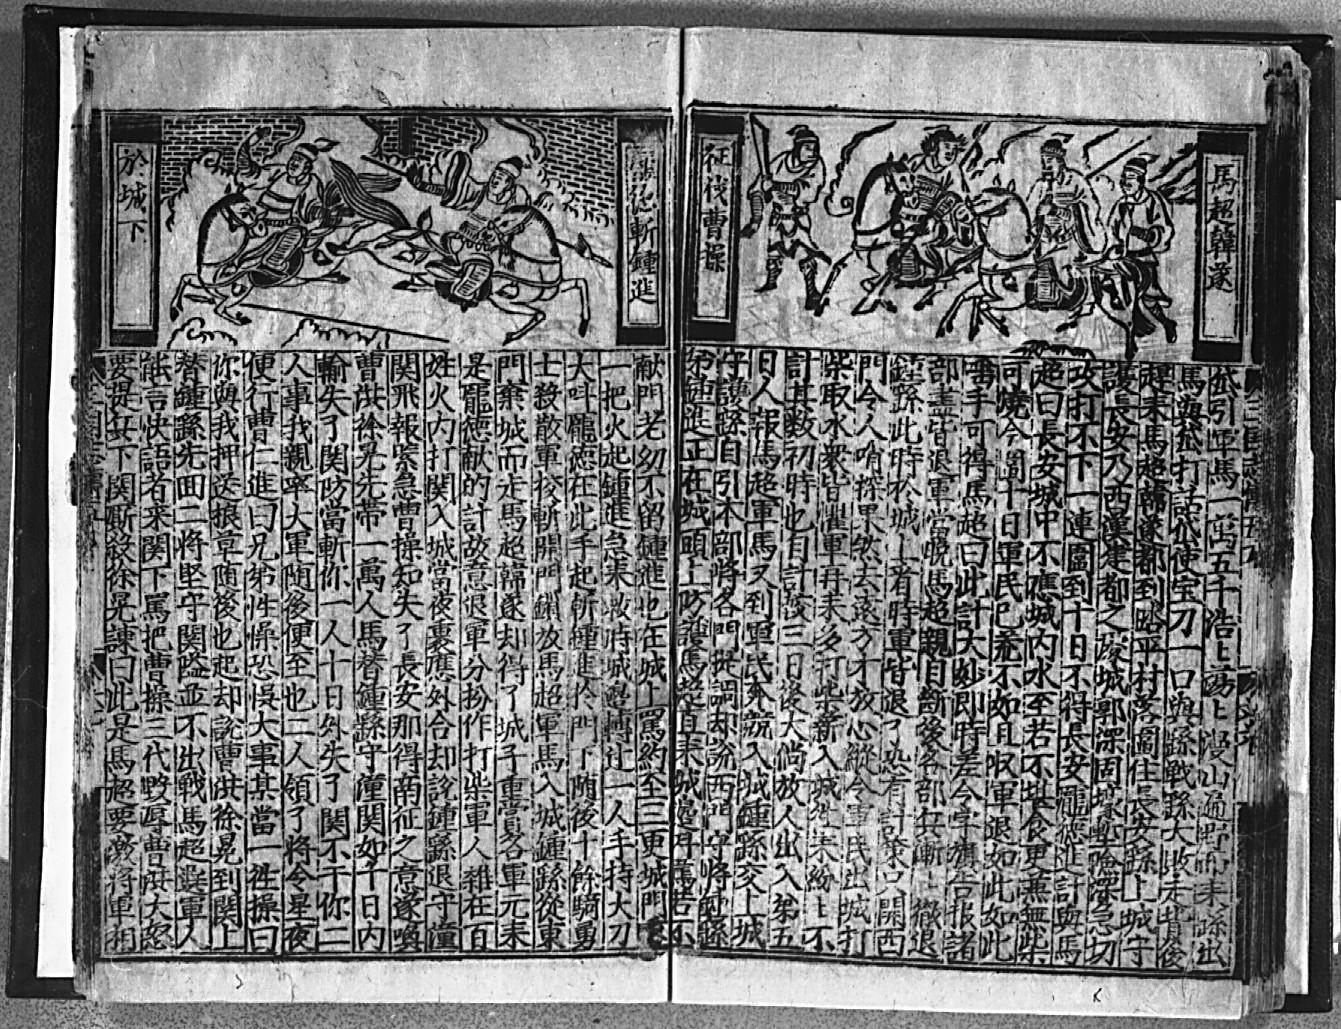 馬超韓遂
征伐曹操
岱引軍馬一萬五千浩〻蕩〻漫山遍野而來繇出
馬與岱打話岱使宝刀一口與繇戰繇大敗走背後
趕來馬超韓遂都到昭平村落圍住長安繇上城守
護長安乃西漢建都之處城郭深固壕塹險深急切
攻打不下一連圍到十日不得長安龐德進計與馬
超曰長安城中不應城內水至若不堪食更兼無柴
可燒今圍十日軍民已荒不如且收軍退如此如此
唾手可得馬超曰此計大妙即時差令字旗告報諸
部盡皆退軍當晚馬超親自斷後各部兵漸〻徹退
鍾繇此時於城上看時軍皆退了恐有計策只開西
門令人哨探果然去遠方才放心縱令軍民出城打
柴取水衆皆濯軍再來多打柴薪入城姓來紛〻不
計其數初時也自計較三日後大倘放人出入第五
日人報馬超軍馬又到軍民奔競入城鍾繇交上城
守護繇自引本部將各門提調却說西門守將乃繇
弟鍾進正在城頭上防護馬超直來城邊大罵若不
張德斬鍾進
於城下
献門老幼不留鍾進也在城上罵約至三更城門
一把火起鍾進急來救時城邊轉过一人手持大刀
大叫龐德在此手起斬鍾進於門下随後十餘騎勇
士殺散軍校斬開門鎖放馬超軍馬入城鍾繇從東
門棄城而走馬超韓遂却得了城子重賞各軍元来
是龐德献的計故意退軍分扮作打柴軍人雜在百
姓火内打関入城當夜裏應外合却說鍾繇退守潼
関飛報緊急曹操知失了長安那得南征之意遂喚
曹洪徐晃先帶一萬人馬替鍾繇守潼関如十日内
輸失了関防當斬你一人十日外失了関不干你二
人事我親率大軍随後便至也二人領了將令星夜
便行曹仁進曰兄弟性懆恐悞大事某當一往操曰
你與我押送粮草随後也起却說曹洪徐晃到関上
替鍾繇先回二將堅守関隘並不出戰馬超選軍人
能言快語者来関下罵把曹操三代毀辱曹洪大怒
要提兵下関厮殺徐晃諫曰此是馬超要激将軍相